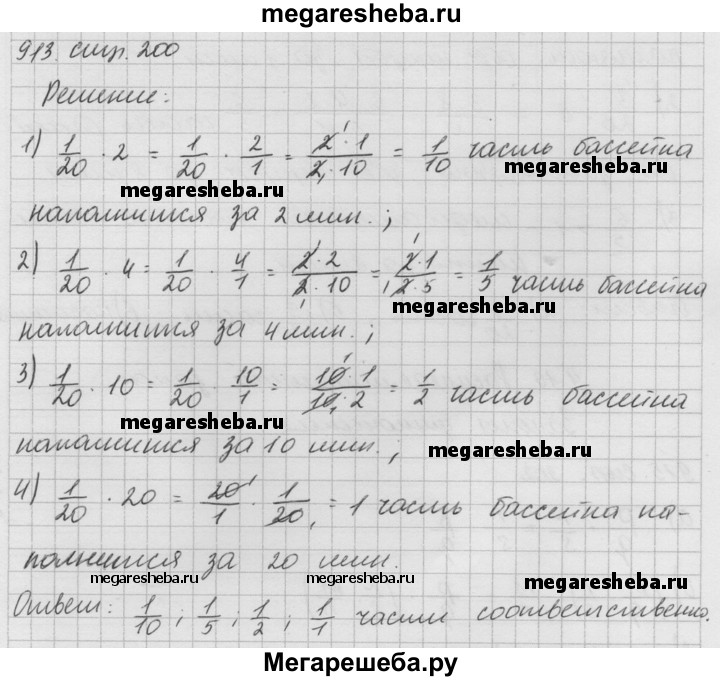 megaresheba.ru
913. стр. 200
Решение:
1) 1/20 · 2 = 1/20 · 2/1 = 2·1/2·10 = 1/10 часть бассейна
megaresheba.ru megaresheba.ru
наполнится за 2 мин.;
2) 1/20 · 4 = 1/20 · 4/1 = 2·2/2·10 = 2·1/2·5 = 1/5 часть бассейна
megaresheba.ru
наполнится за 4 мин.;
3) 1/20 · 10 = 1/20 · 10/1 = 10·1/10·2 = 1/2 часть бассейна
megaresheba.ru
наполнится за 10 мин.;
megaresheba.ru
4) 1/20 · 20 = 20/1 · 1/20 = 1 часть бассейна на-
полнится за 20 мин.
megaresheba.ru megaresheba.ru megaresheba.ru
Ответ: 1/10; 1/5; 1/2; 1/1 части соответственно.
Мегарешеба.ру